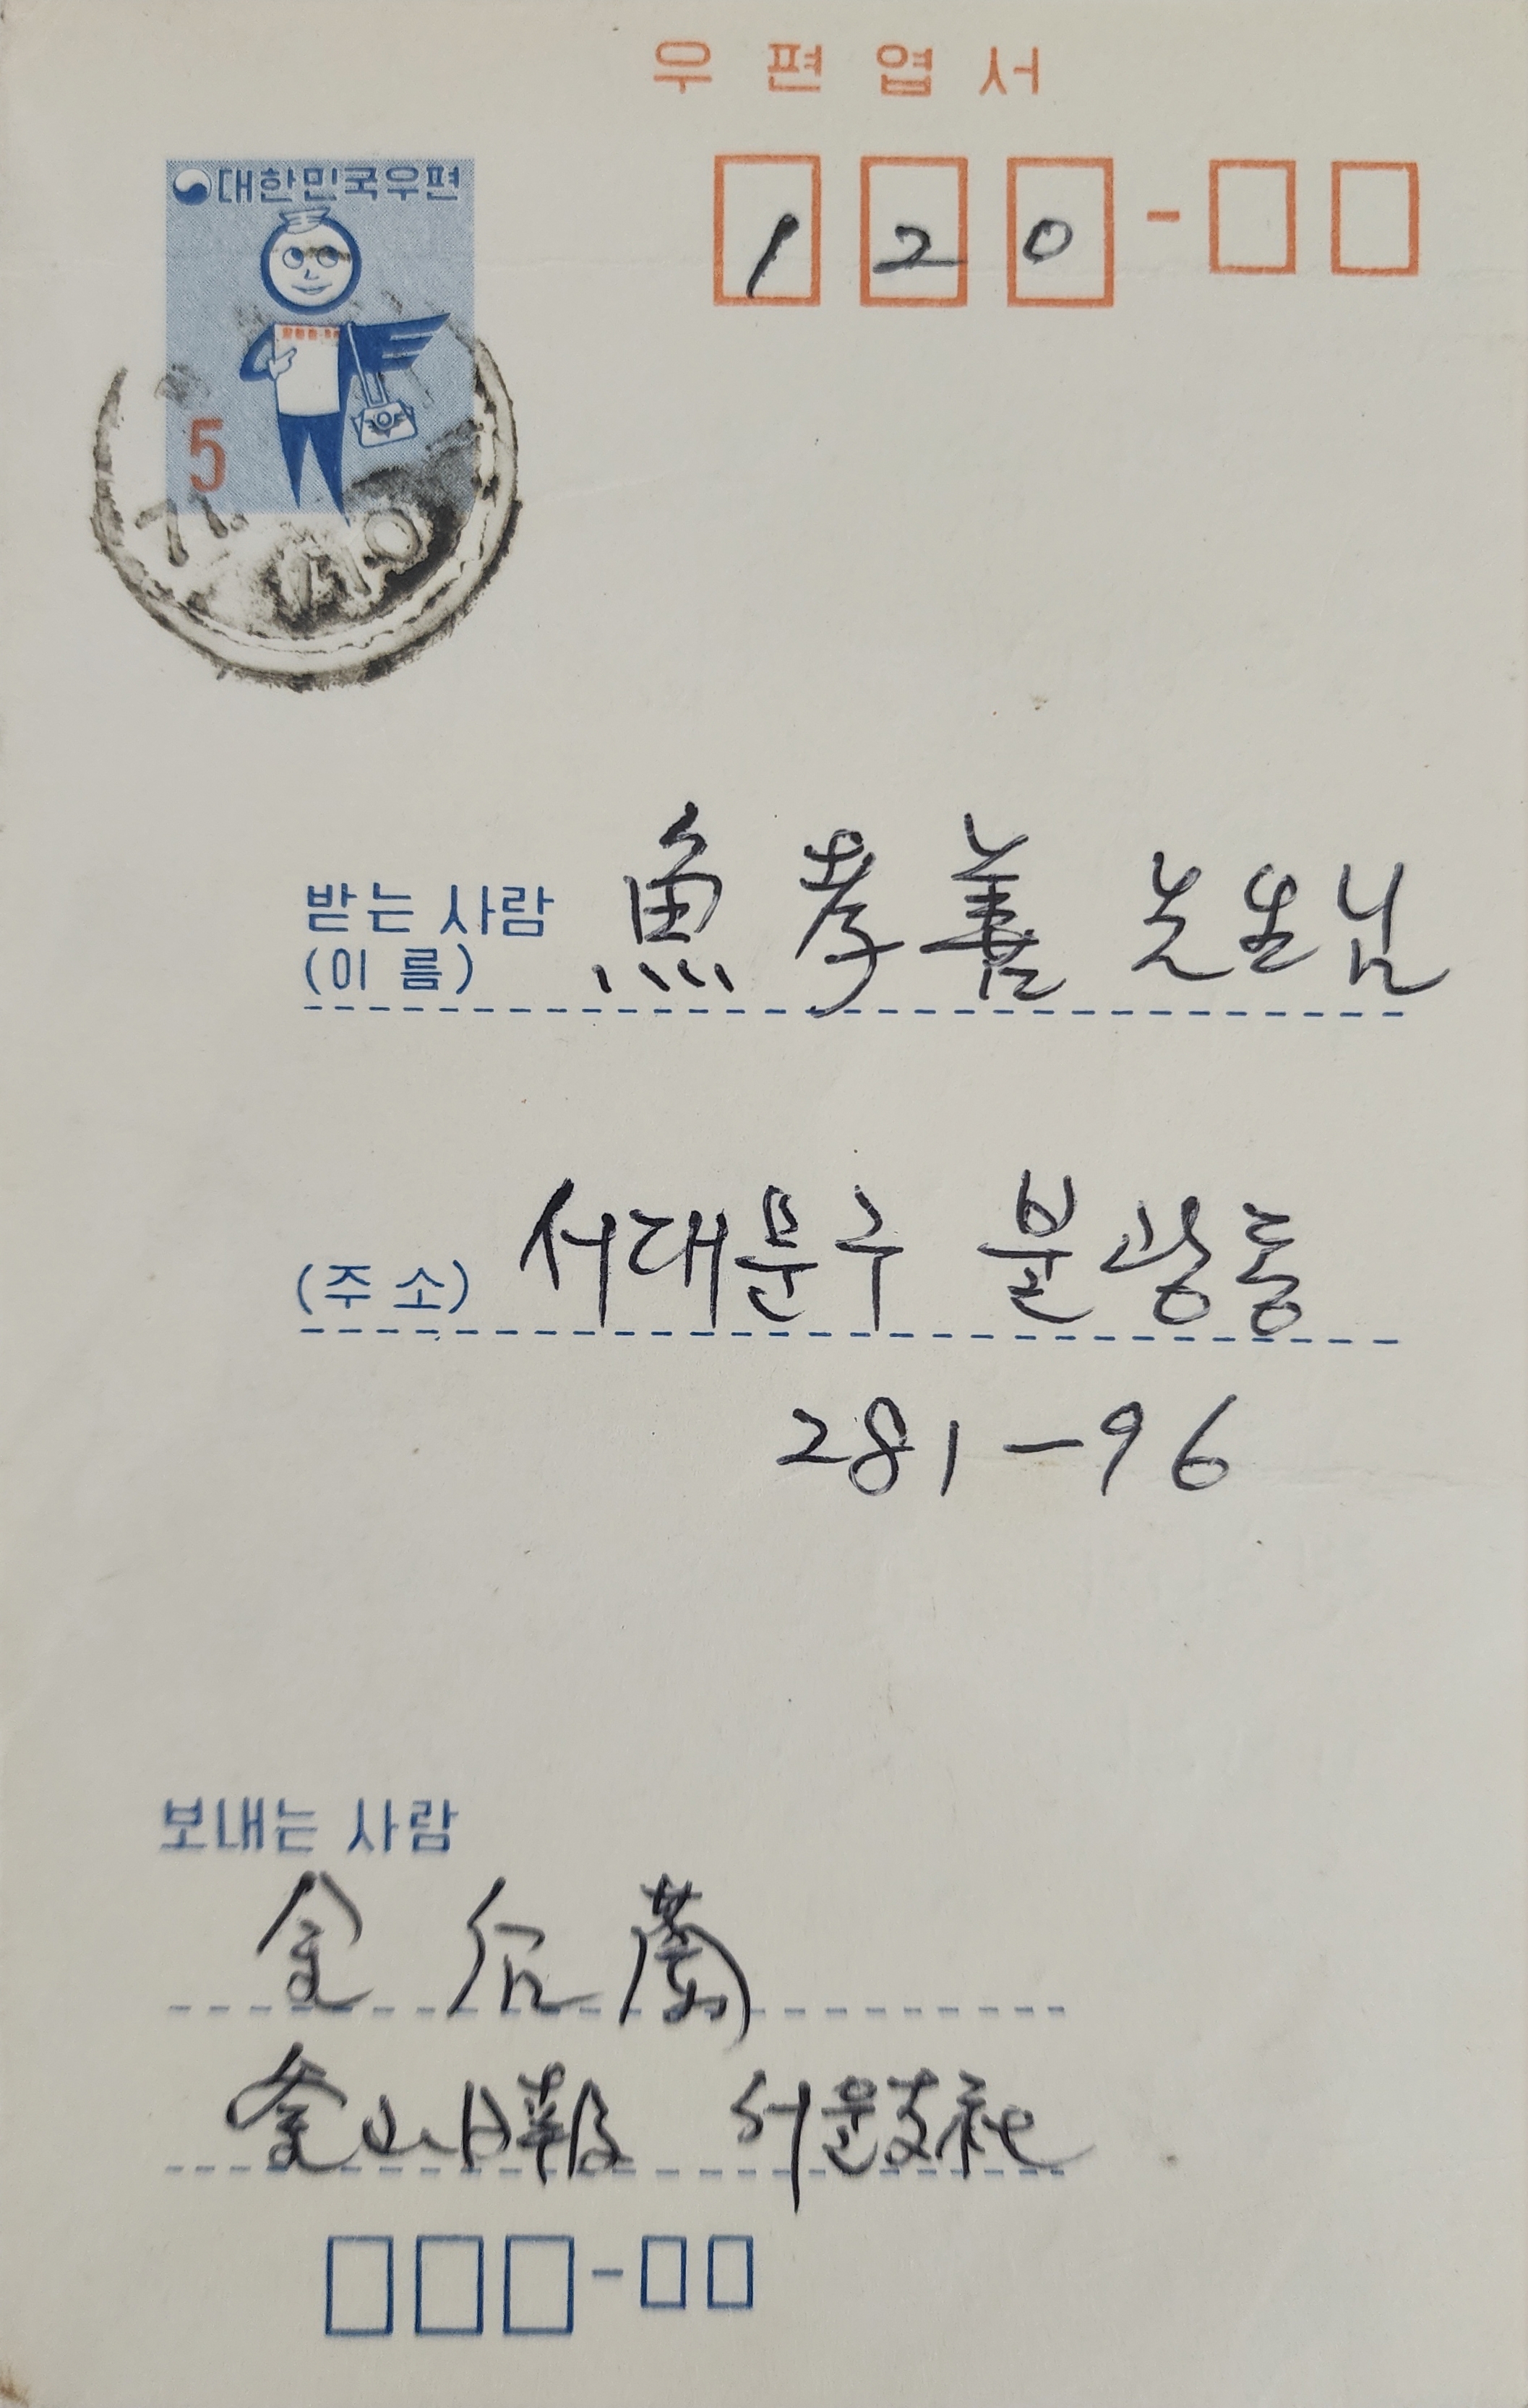 우편엽서
대한민국우편
120-
5
71.
받는 사람 魚孝善 先生님
(이름)
(주소) 서대문구 불광동
281-96
보내는 사람
金
釜山日報 서울支社